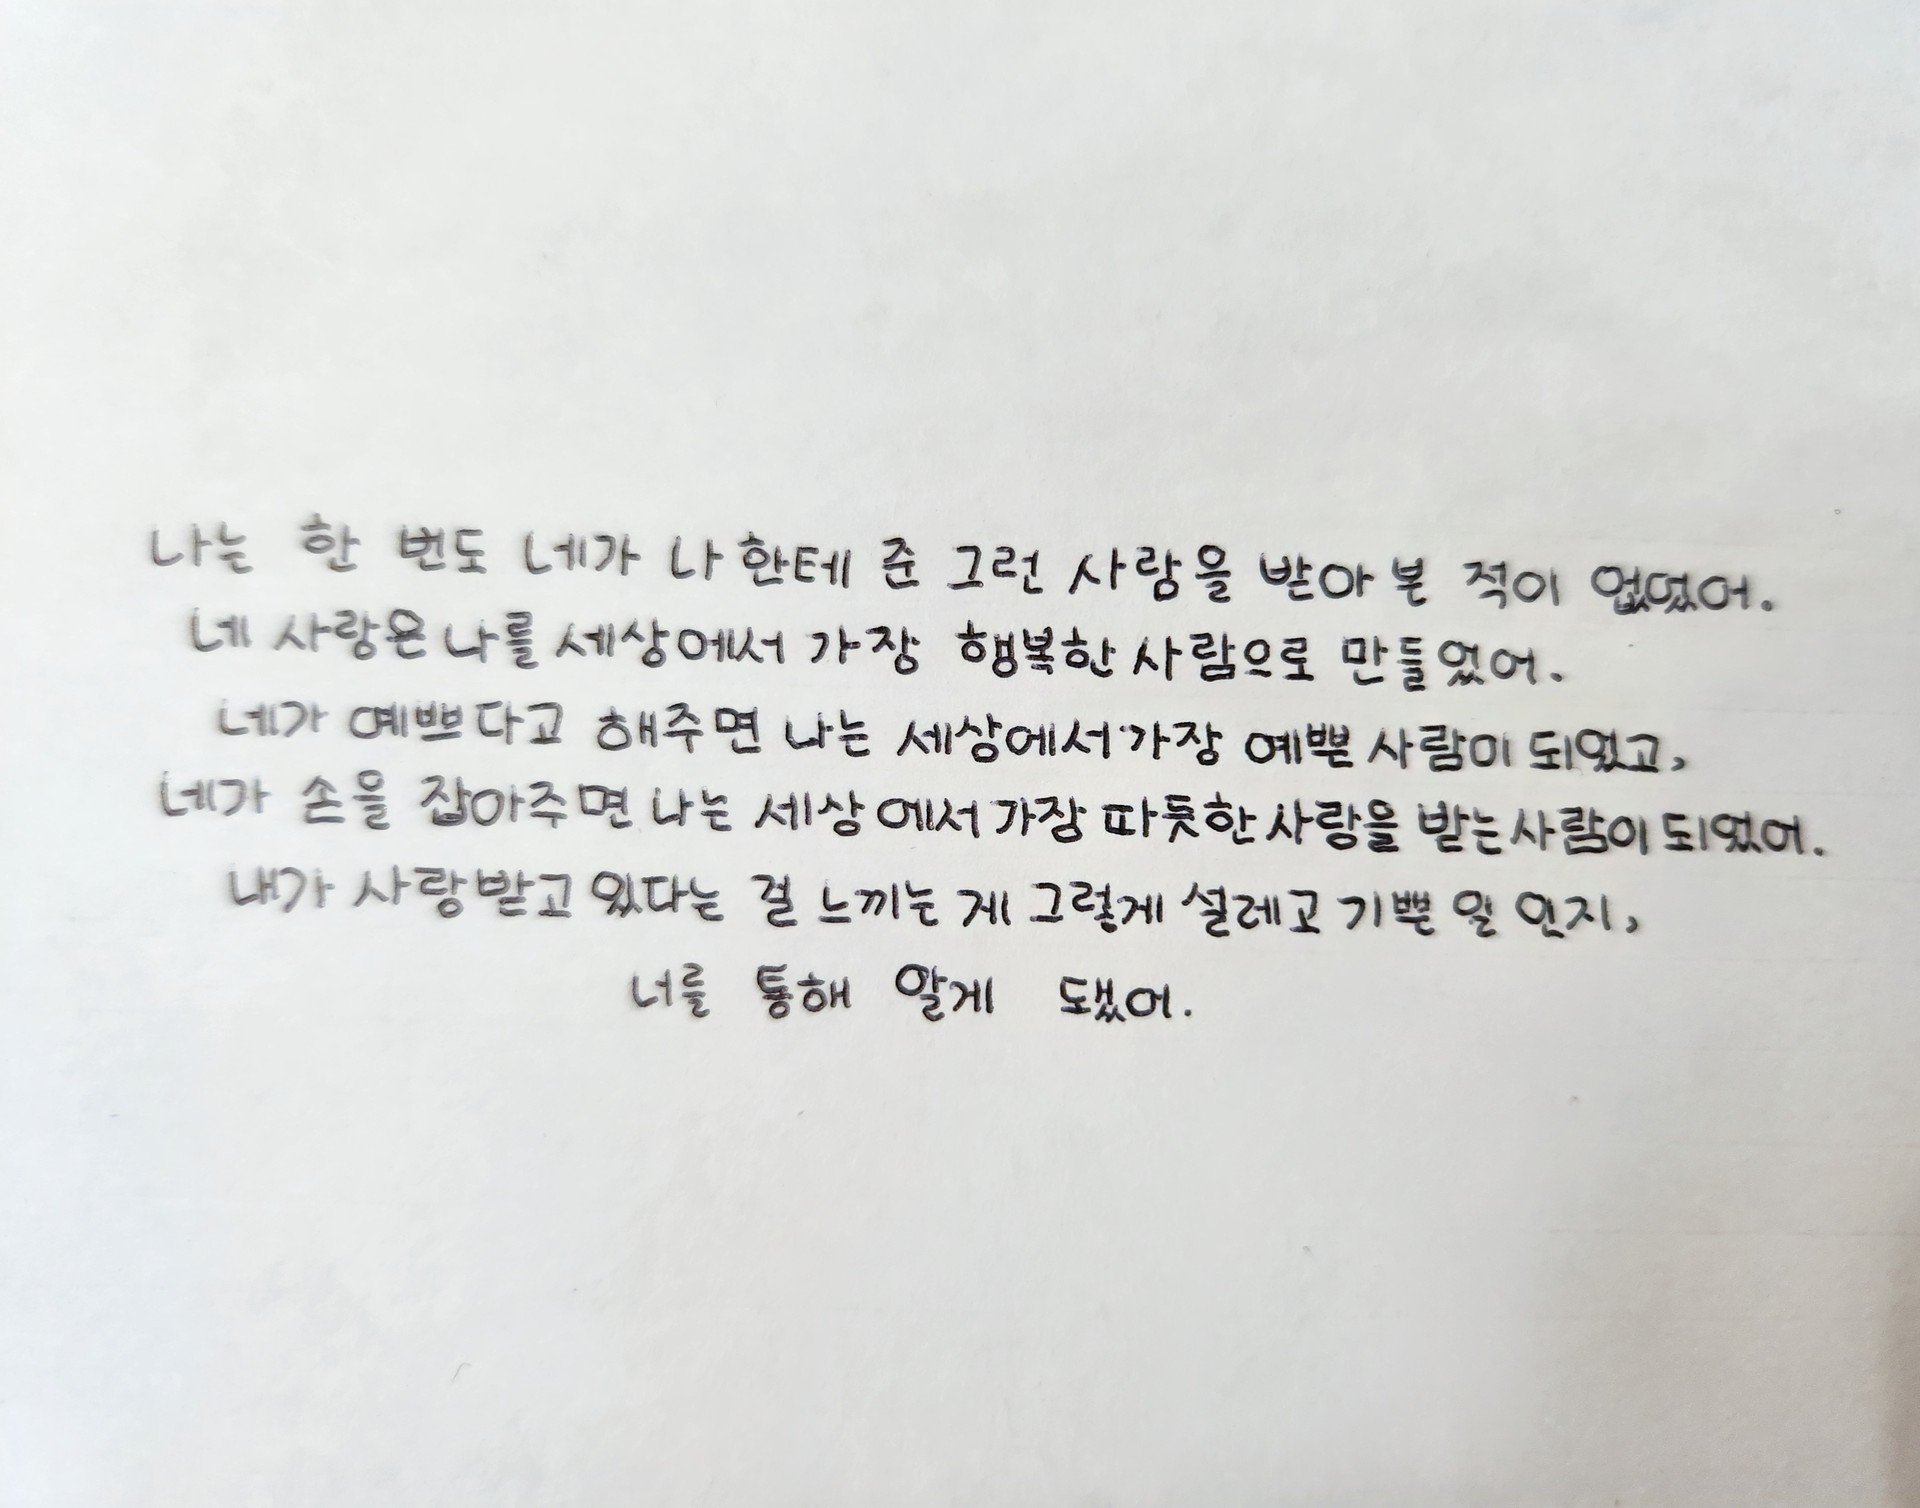 나는 한 번도 네가 나한테 준 그런 사람을 받아 본 적이 없었어.
네 사랑은 나를 세상에서 가장 행복한 사람으로 만들었어.
네가 예쁘다고 해주면 나는 세상에서 가장 예쁜 사람이 되었고,
네가 손을 잡아주면 나는 세상에서 가장 따듯한 사랑을 받는 사람이 되었어.
내가 사랑받고 있다는 걸 느끼는 게 그렇게 설레고 기쁜 일 인지,
너를 통해 알게 됐어.